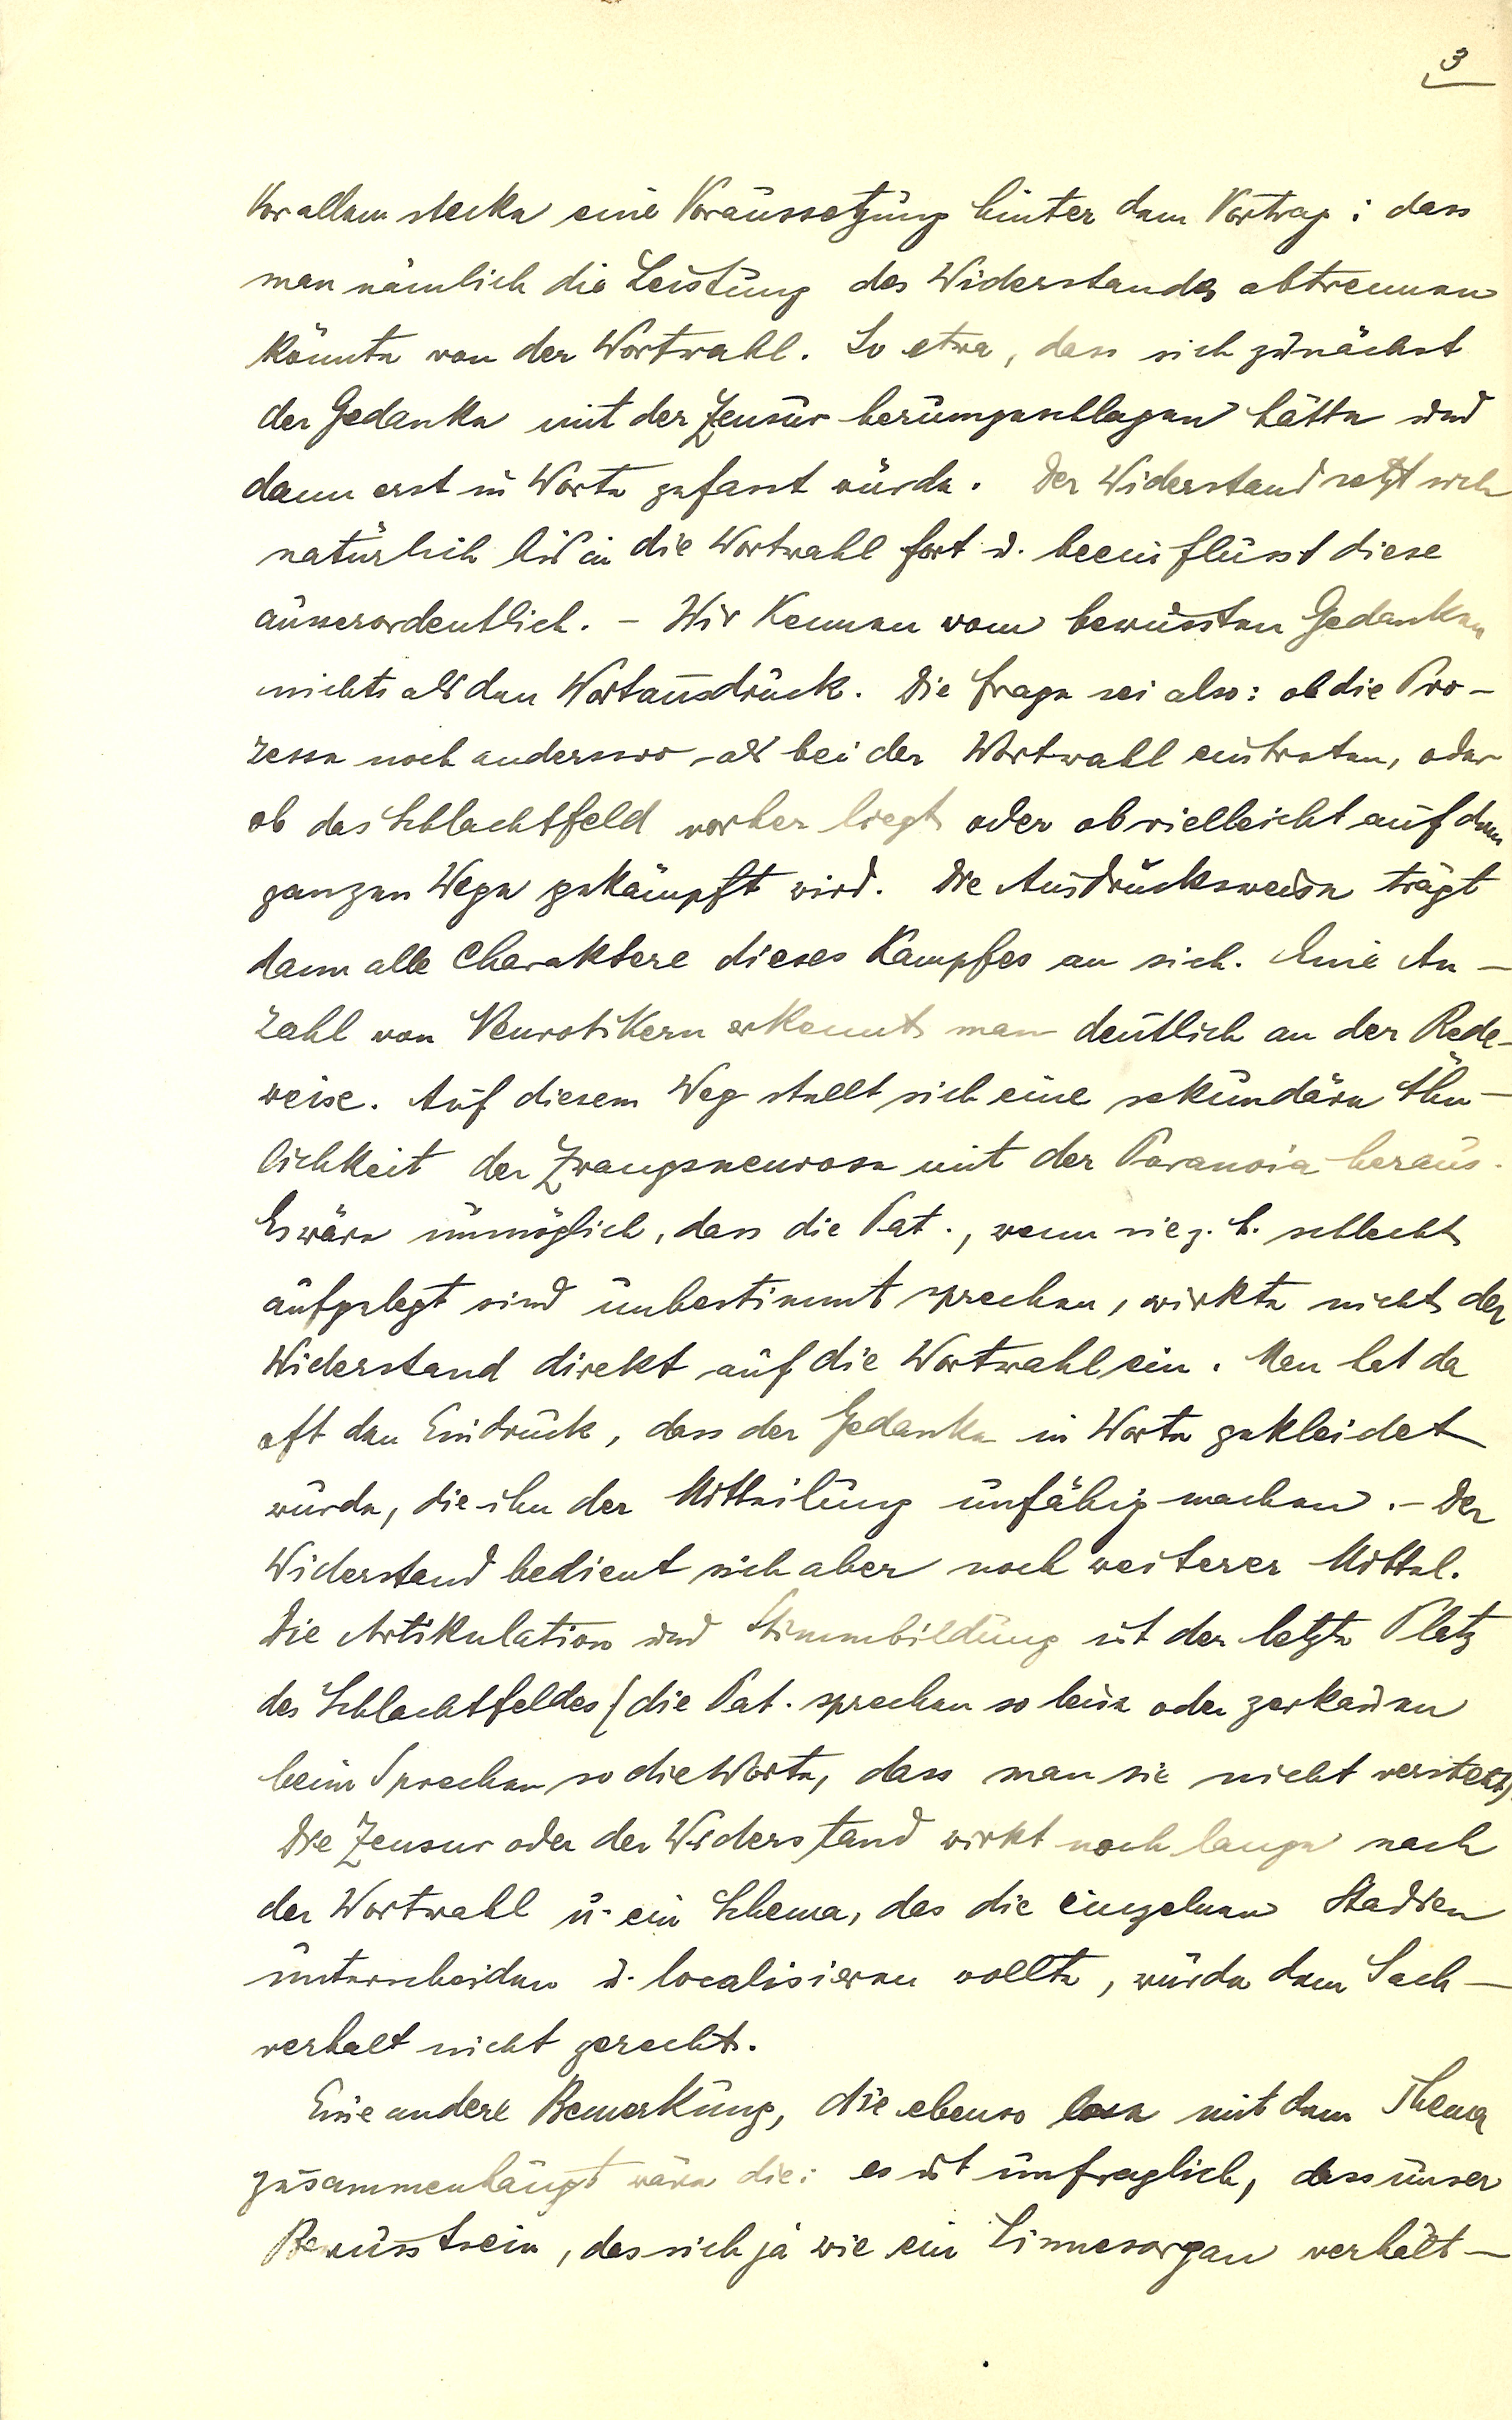 3
Vor allem stecke eine Voraussetzung hinter dem Vortrag: dass
man nämlich die Leistung des Widerstandes abtrennen
könnte von der Wortwahl. So etwa, dass sich zunächst
der Gedanke mit der Zensur herumgeschlagen hätte und
dann erst in Worte gefasst würde. Der Widerstand setzt sich
natürlich bis in die Wortwahl fort u. beeinflusst diese
ausserordentlich. – Wir kennen vom bewussten Gedanken
nichts als den Wortausdruck. Die Frage sei also: ob die Pro-
zesse noch anderswo als bei der Wortwahl eintreten, oder
ob das Schlachtfeld vorher liegt oder ob vielleicht auf dem
ganzen Wege gekämpft wird. Die Ausdrucksweise trägt
dann alle Charaktere dieses Kampfes an sich. Eine An-
zahl von Neurotikern erkennt man deutlich an der Rede-
weise. Auf diesem Weg stellt sich eine sekundäre Ähn-
lichkeit der Zwangsneurose mit der Paranoia heraus.
Es wäre unmöglich, dass die Pat., wenn sie z. B. schlecht
aufgelegt sind unbestimmt sprechen, wirkte nicht der
Widerstand direkt auf die Wortwahl ein. Man hat da
oft den Eindruck, dass der Gedanke in Worte gekleidet
würde, die ihn der Mitteilung unfähig machen. – Der
Widerstand bedient sich aber noch weiterer Mittel.
Die Artikulation und Stimmbildung ist der letzte Platz
des Schlachtfeldes (die Pat. sprechen so leise oder zerkauen
beim Sprechen so die Worte, dass man sie nicht versteht)
Die Zensur oder der Widerstand wirkt noch lange nach
der Wortwahl u. ein Schema, das die einzelnen Stadien
unterscheiden u. localisieren wollte, würde dem Sach-
verhalt nicht gerecht.
Eine andere Bemerkung, die ebenso lose mit dem Thema
zusammenhängt wäre die: es ist unfraglich, dass unser
Bewusstsein, das sich ja wie ein Sinnesorgan verhält –